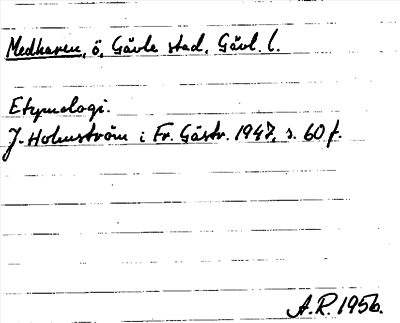 Medharen, ö, Gävle stad, Gävl. l.
Etymologi.
J. Holmström i Fr. Gästr. 1947, s. 60 f.
A.R. 1956.